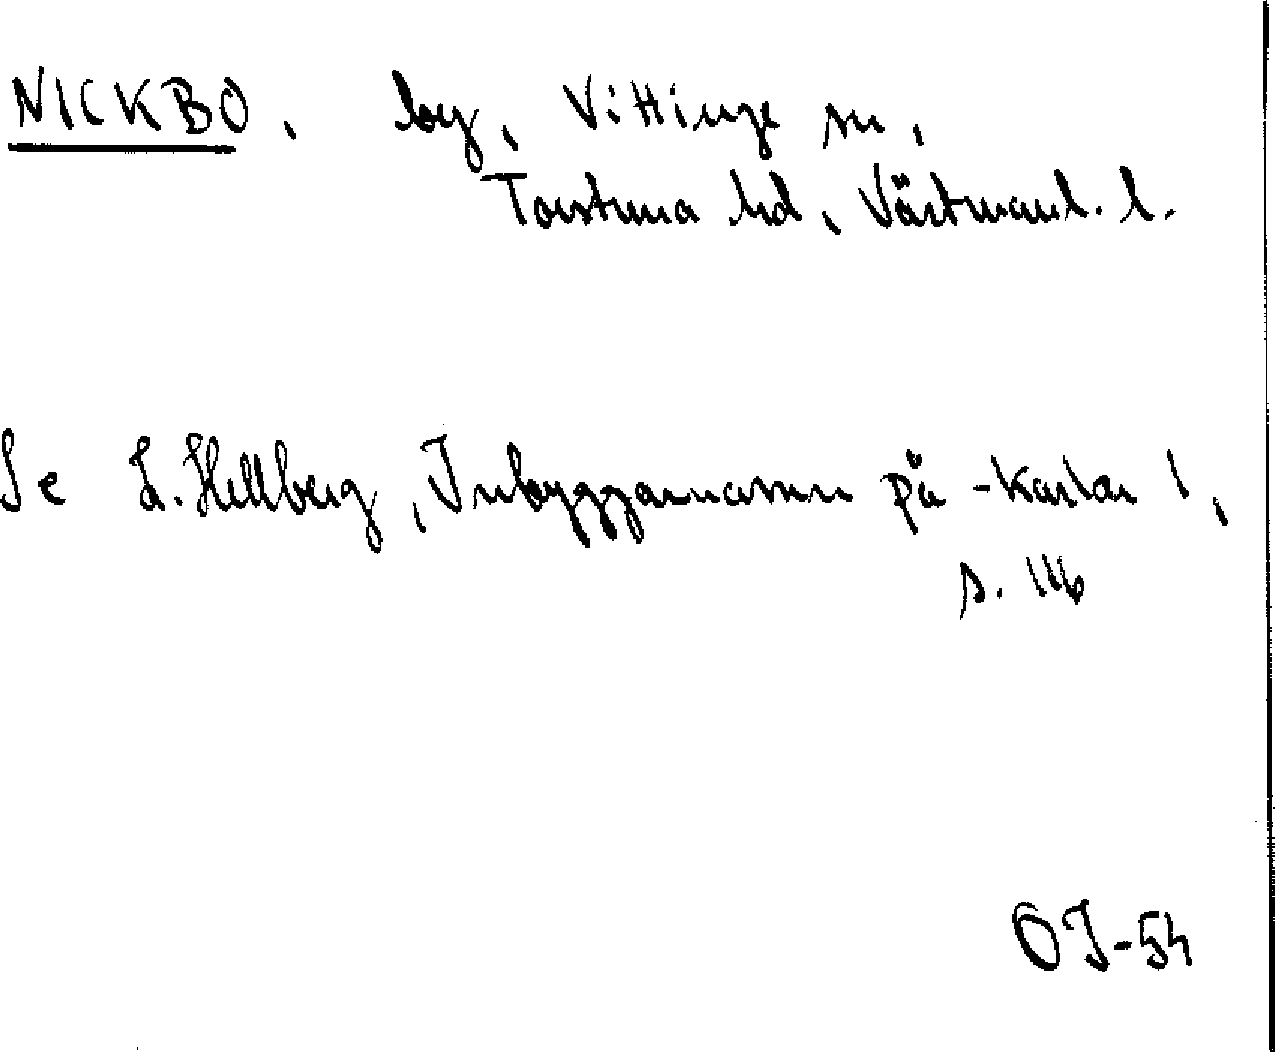 NICKBO, by, Vittinge sn,
Torstuna hd, Västmanl. l.
Se L. Hellberg, Inbyggarnamn på -karlar 1,
s. 116
OJ-54